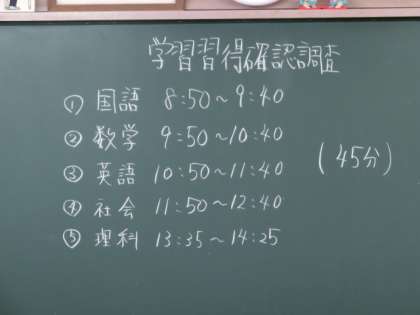 学習習得確認調査
① 国語 8:50～9:40
② 数学 9:50～10:40
③ 英語 10:50～11:40
④ 社会 11:50～12:40
⑤ 理科 13:35～14:25
(45分)